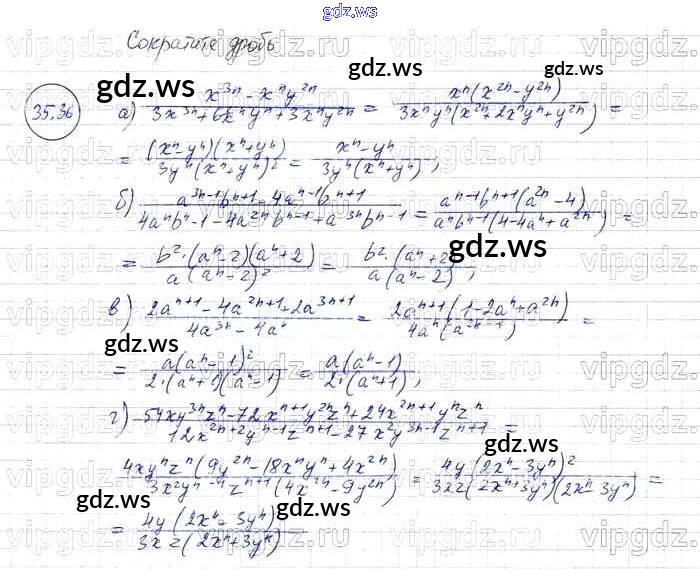 gdz.ws
Сократите дробь
35.36
а) (x^{3n} - x^n y^{2n}) / (3x^{3n} + 6x^n y^n + 3x^n y^{2n}) = x^n(x^{2n} - y^{2n}) / (3x^n y^n(x^{2n} + 2x^n y^n + y^{2n})) =
= (x^n y^n)(x^n + y^n) / (3y^n(x^n + y^n)^2) = (x^n - y^n) / (3y^n(x^n + y^n)),
б) (a^{3n-1} b^{n+1} - 4a^{n-1} b^{n+1}) / (4a^n b^n - 1 - 4a^{2n} b^{n-1} + a^{3n} b^{n-1}) = a^{n-1} b^{n+1}(a^{2n} - 4) / (a^n b^{n-1}(4 - 4a^n + a^{2n})) =
= b^2 · (a^n - 2)(a^n + 2) / (a(a^n - 2)^2) = b^2 · (a^n + 2) / (a(a^n - 2)),
в) (2a^{n+1} - 4a^{2n+1} + 2a^{3n+1}) / (4a^{3n} - 4a^n) = 2a^{n+1}(1 - 2a^n + a^{2n}) / (4a^n(a^{2n} - 1)) =
= a(a^n - 1)^2 / (2 · (a^n + 1)(a^n - 1)) = a(a^n - 1) / (2 · (a^n + 1)),
г) (-54xy^{3n} z^n - 72x^{n+1} y^{2n} z^n + 24x^{2n+1} y^n z^n) / (12x^{2n+2} y^{n-1} z^{n+1} - 27x^2 y^{3n-1} z^{n+1}) =
4xy^n z^n(9y^{2n} - 18x^n y^n + 4x^{2n}) / (3x^2 y^{n-1} z^{n+1}(4x^{2n} - 9y^{2n})) = 4y(2x^n - 3y^n)^2 / (3xz(2x^n + 3y^n)(2x^n - 3y^n)) =
= 4y(2x^n - 3y^n) / (3xz(2x^n + 3y^n))